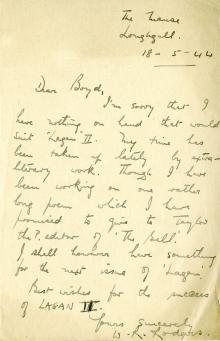 The Manse
Loughgall.
18 - 5 - 44
Dear Boyd,
I'm sorry that I
have nothing on hand that would
suit 'Lagan' II. My time has
been taken up lately by extra-
literary work. Though I have
been working on one rather
long poem which I have
promised to give to Taylor
the P. editor of 'The Bell'.
I shall however have something
for the next issue of 'Lagan'.
Best wishes for the success
of LAGAN II.
Yours sincerely
W. R. Rodgers.